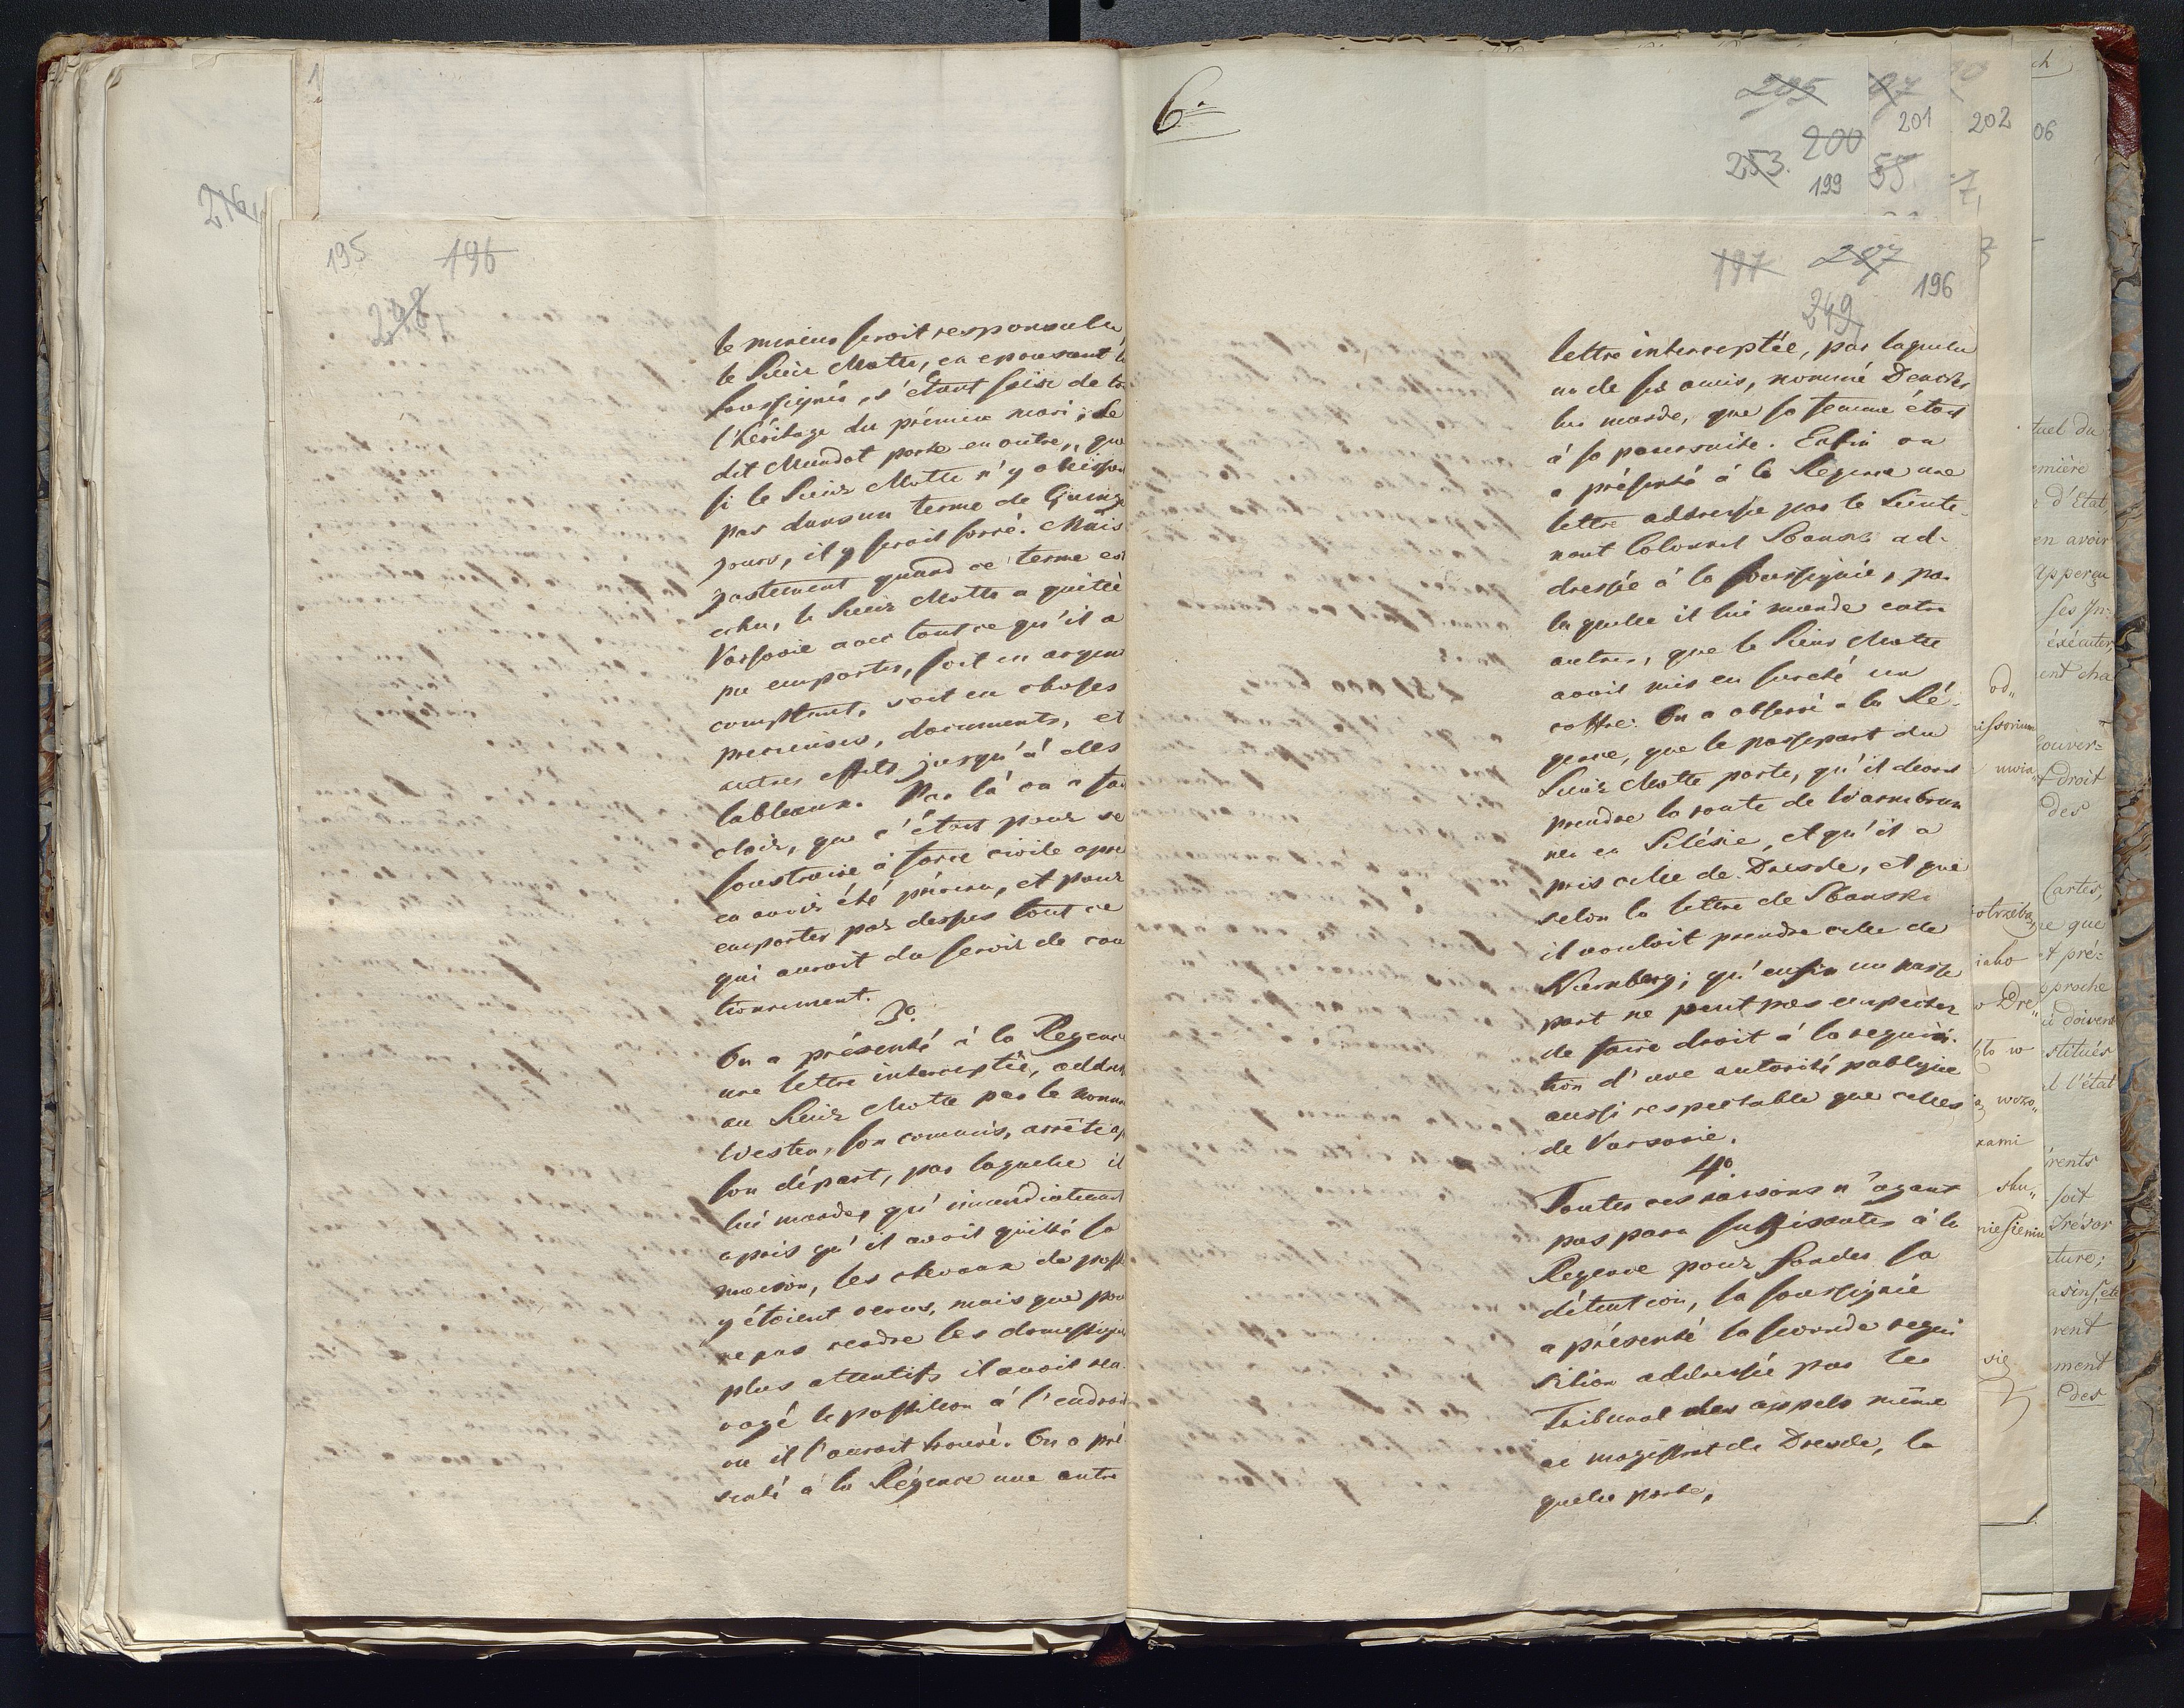 216
195 196
248
le mineur seroit responsable,
le Sieur Motte, en epousant la
soussignée, s'étant saisi de to
l'héritage du prémier mari; Le
dit Mandat porte en outre,, que
si le Sieur Motte n'y obéissoit
pas dans un terme de Quinze
jours, il y seroit forcé. Mais
justement quand ce terme est
echu, le Sieur Motte a quitté
Varsovie avec tout ce qu'il a
pu emporter, soit en argent
comptant, soit en choses
precieuses, documents, et
autres effets jusqu'à des
tableaux. Par là on a
clair, que c'étoit pour se
soustraire à force civile apres
en avoir été prévenu, et pour
emporter par dessus tout ce
qui auroit du servir de cau
tionnement.
3o.
On a présenté à la Regence
une lettre interceptée, addres
au Sieur Motte par le nommé
Westen, son commis, arrêté ap
son départ, par laquelle il
lui mande, qu'immédiatement
après qu'il avoit quitté sa
maison, les chevaux de poste
y étoient venus, mais que pour
ne pas rendre les domestiques
plus attentifs il avoit ren
voyé le postillon à l'endroit
ou il l'auroit trouvé. On a pré
senté à la Régence une autre
6
205 87
201 202 06
200
253. 199 58
197 287
249 196
lettre interceptée, par laquelle
un de ses amis, nommé
lui mande, que sa femme étoit
à sa poursuite. Enfin on
a présenté à la Regence une
lettre addressée par le Lieute-
nant Colonnel Sbanski ad-
dressée à la soussignée, par
laquelle il lui mande entre
autres, que le Sieur Motte
avoit mis en sureté un
coffre. On a observé a la Ré-
gence, que le passeport du
Sieur Motte porte, qu'il devoit
prendre la route de Warmbrun
nen en Silésie, et qu'il a
pris celle de Dresde, et que
selon la lettre de Sbanski
il vouloit prendre celle de
Nürnberg; qu'enfin un passe
port ne peut pas empecher
de faire droit à la requisi-
tion d'une autorité publique
aussi respectable que celles
de Varsovie.
4o.
Toutes ces raisons n'ayant
pas paru suffisantes à la
Regence pour fonder sa
détention, la soussignée
a présenté la seconde requi
sition addressée par le
Tribunal des appels même
au magistrat de Dresde, la
quelle porte,
ch
tuel du
emière
d'Etat,
en avoir
Apperçu
ses In=
éxécuter,
ent cha
ouver=
droit
des
Cartes,
ce que
et pré=
proche
ui doivent
stitués
l'état
rents
soit
Trésor
ture;
rent
ment
des
od,,
issorium
iako
w Dre,,
to w
kami
sku,,
się